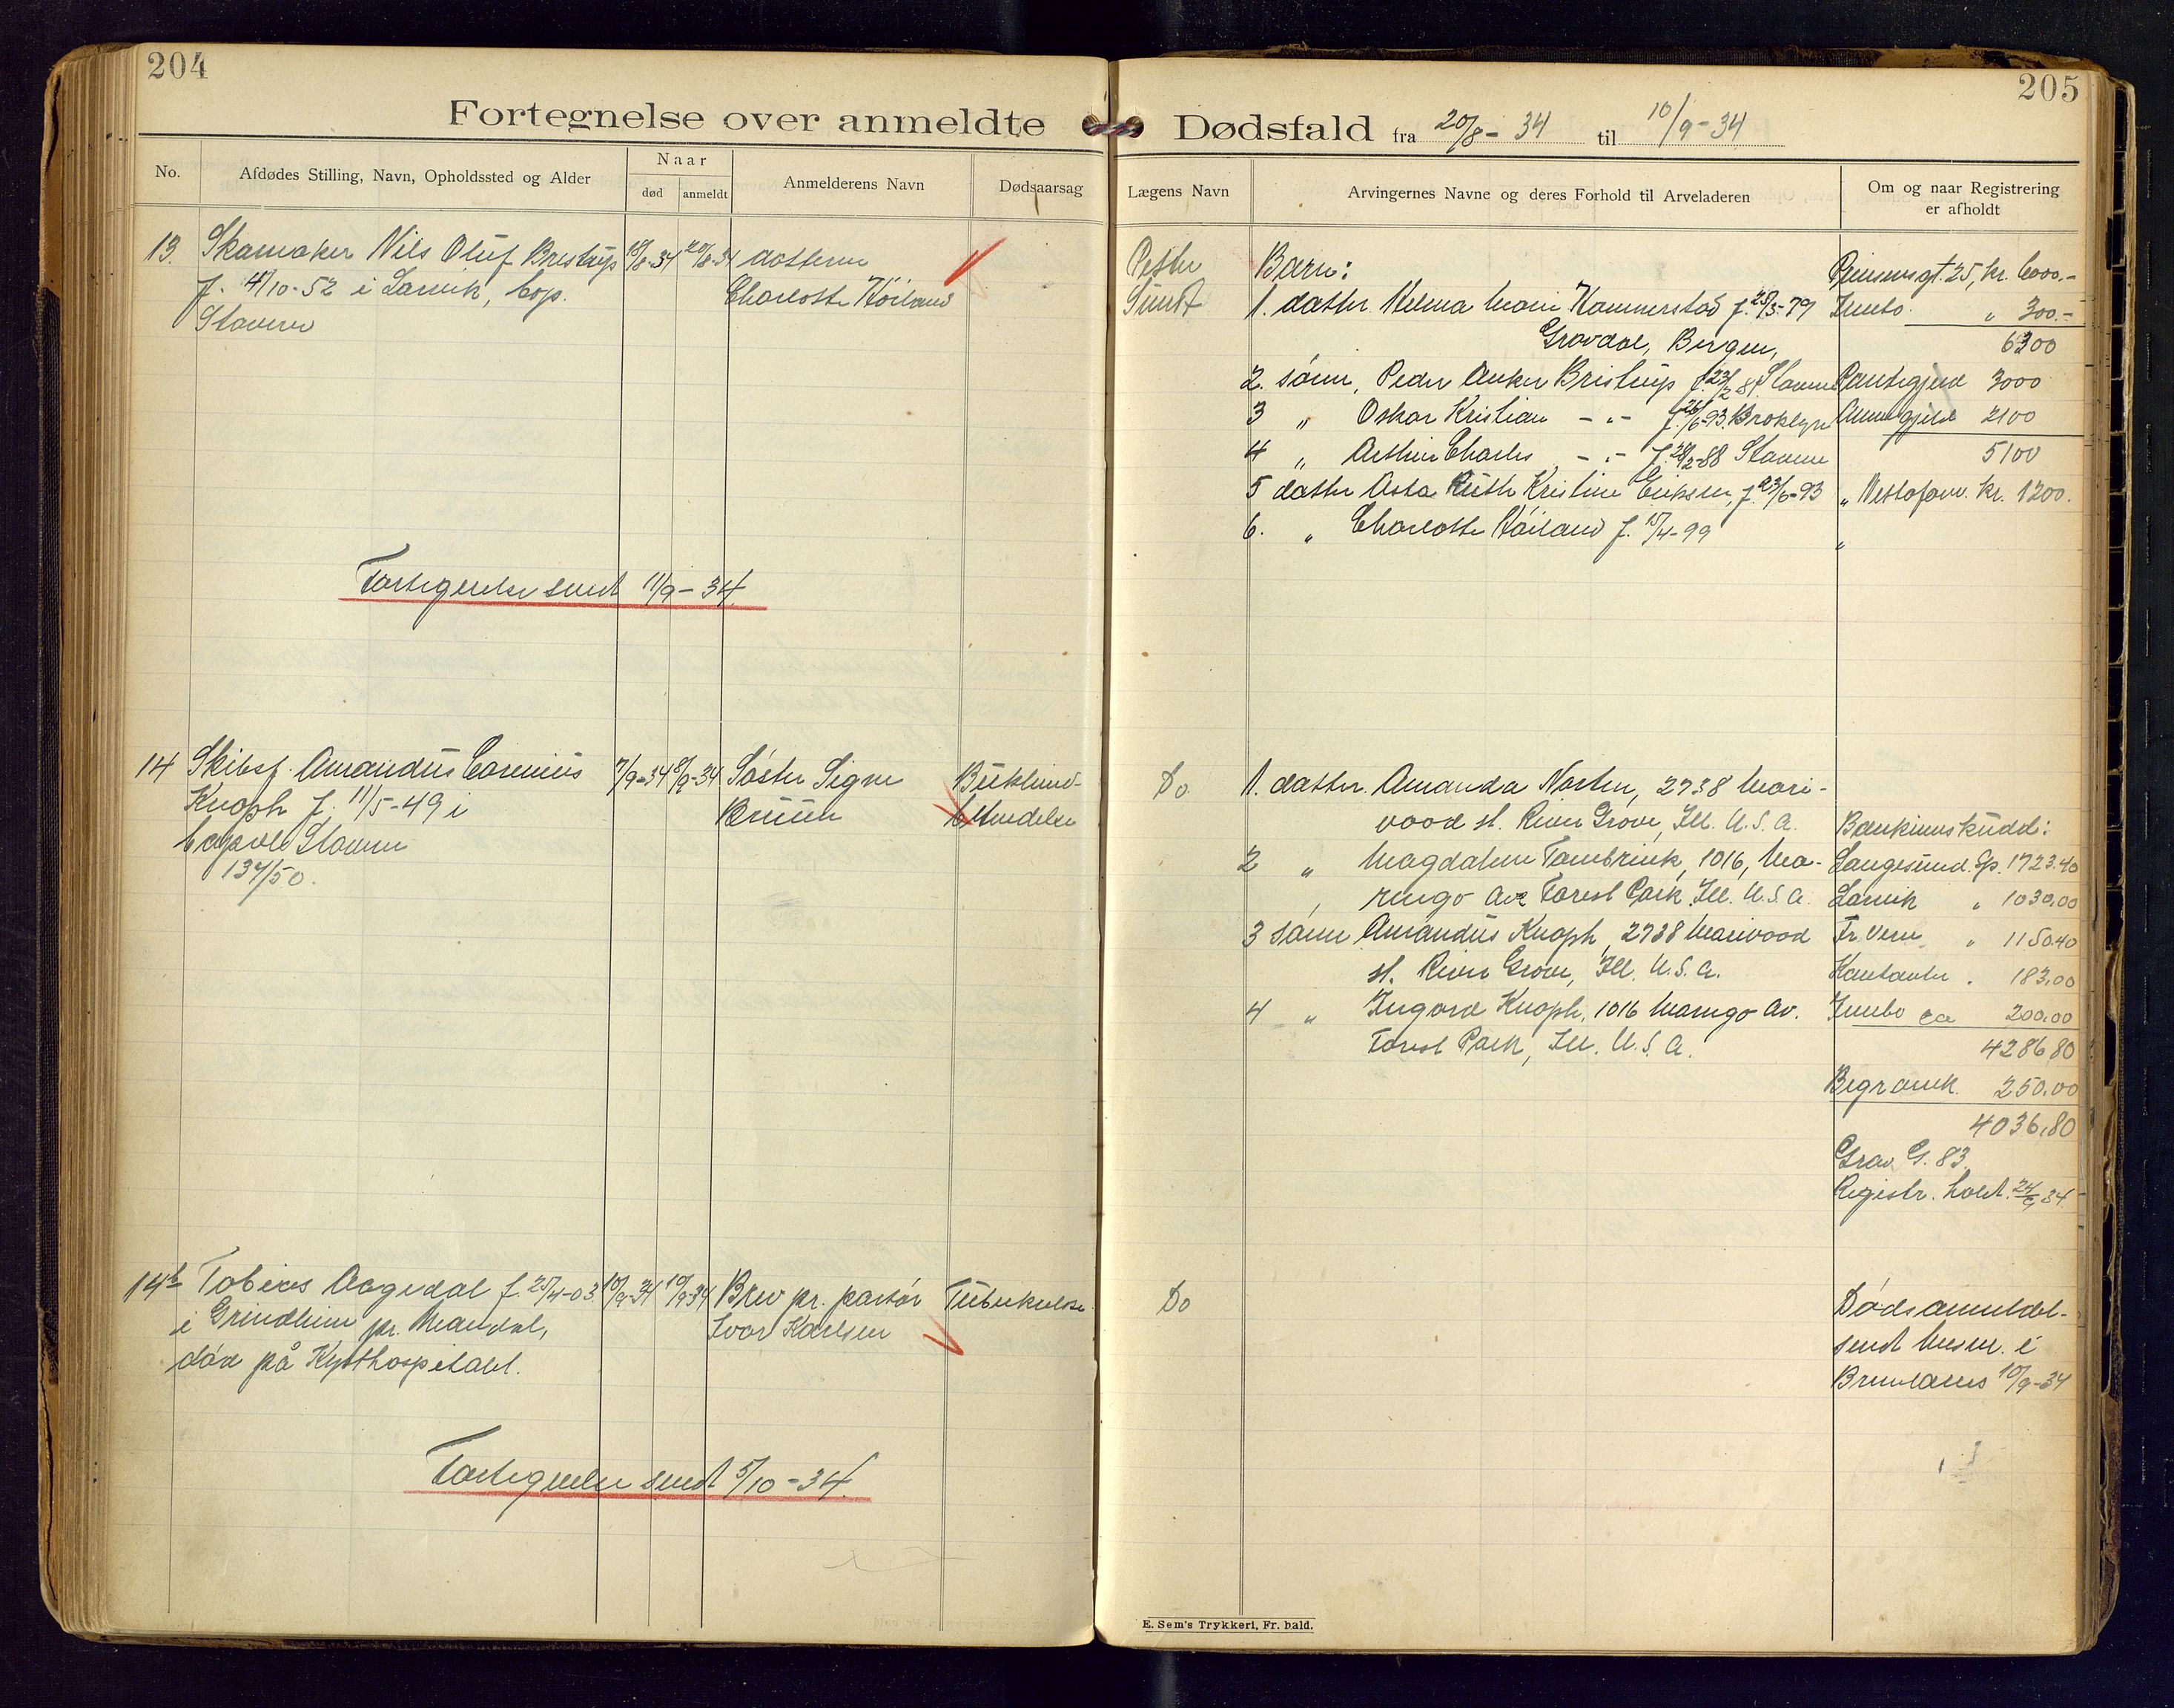 204
Fortegnelse over anmeldte
No.
Afdødes Stilling, Navn, Opholdssted og Alder
Naar
død
anmeldt
Anmelderens Navn
Dødsaarsag
13. Skomaker Nils Oluf Bristrup 18/8-34 20/8-34 datteren
f. 4/10-52 i Larvik, bop. Charlotte Höiland
Stavern
Fortegnelse sendt 11/9-34.
14 Skibsf. Amandus Corenius 7/9-34 8/9-34 Søster Signe
Knoph f. 11/5-49 i Bruun
Stavern
134/50.
14b Tobias Aagedal f. 25/4-03 10/9-34 10/9-34 Brev pr. pastor Tuberkulose
i Grindheim pr. Mandal, Ivar Karlsen
død på Kysthospitalet.
Fortegnelse sendt 5/10-34.
205
Dødsfald fra 20/8-34 til 10/9-34
Lægens Navn
Arvingernes Navne og deres Forhold til Arveladeren
Om og naar Registrering
er afholdt
Petter Barn: 25, kr. 6000.-
Sundt 1. datter Helma Marie Hammerstad f. 25/5-79 Innbo " 300.-
Gravdal, Bergen, 6300
2. sønn, Peder Anker Bristrup Stavern Pantegjeld 3000
3 " Oskar Kristian - " - f. 26/6-93. Broklyn Annen gjeld 2100
4 " Arthur Charles - " - f. 28/2-88 Stavern 5100
5 datter Asta Ruth Kristine Eriksen, f. 23/6-93 " Nettoform. kr. 1200.
6. " Charlotte Höiland f. 15/4-99 "
Do 1. datter Amanda Norten, 2738 Mari-
vood st. River Grove, Ill. U.S.A. Bankinnskudd:
2 " Magdalene Tambrink, 1016, Ma- Langesund. Sp. 1723.40
rengo Ave Forest Park Ill. U.S.A. Larvik " 1030,00
3 sønn Amandus Knoph, 2738 Marivood Fr.vern " 1150.40
st. River Grove, Ill. U.S.A. Kontanter . 183,00
4 " Ingvard Knoph, 1016 Marengo Av. Innbo ca 200,00
Forest Park, Ill. U.S.A. 4286,80
Begravelse 250,00
4036,80
Grav G. 83.
Registr. holdt 24/9 34
Do Dødsanmeldel-
sendt lensm. i
Brunlanes 10/9-34
E. Sem's Trykkeri, Fr. hald.